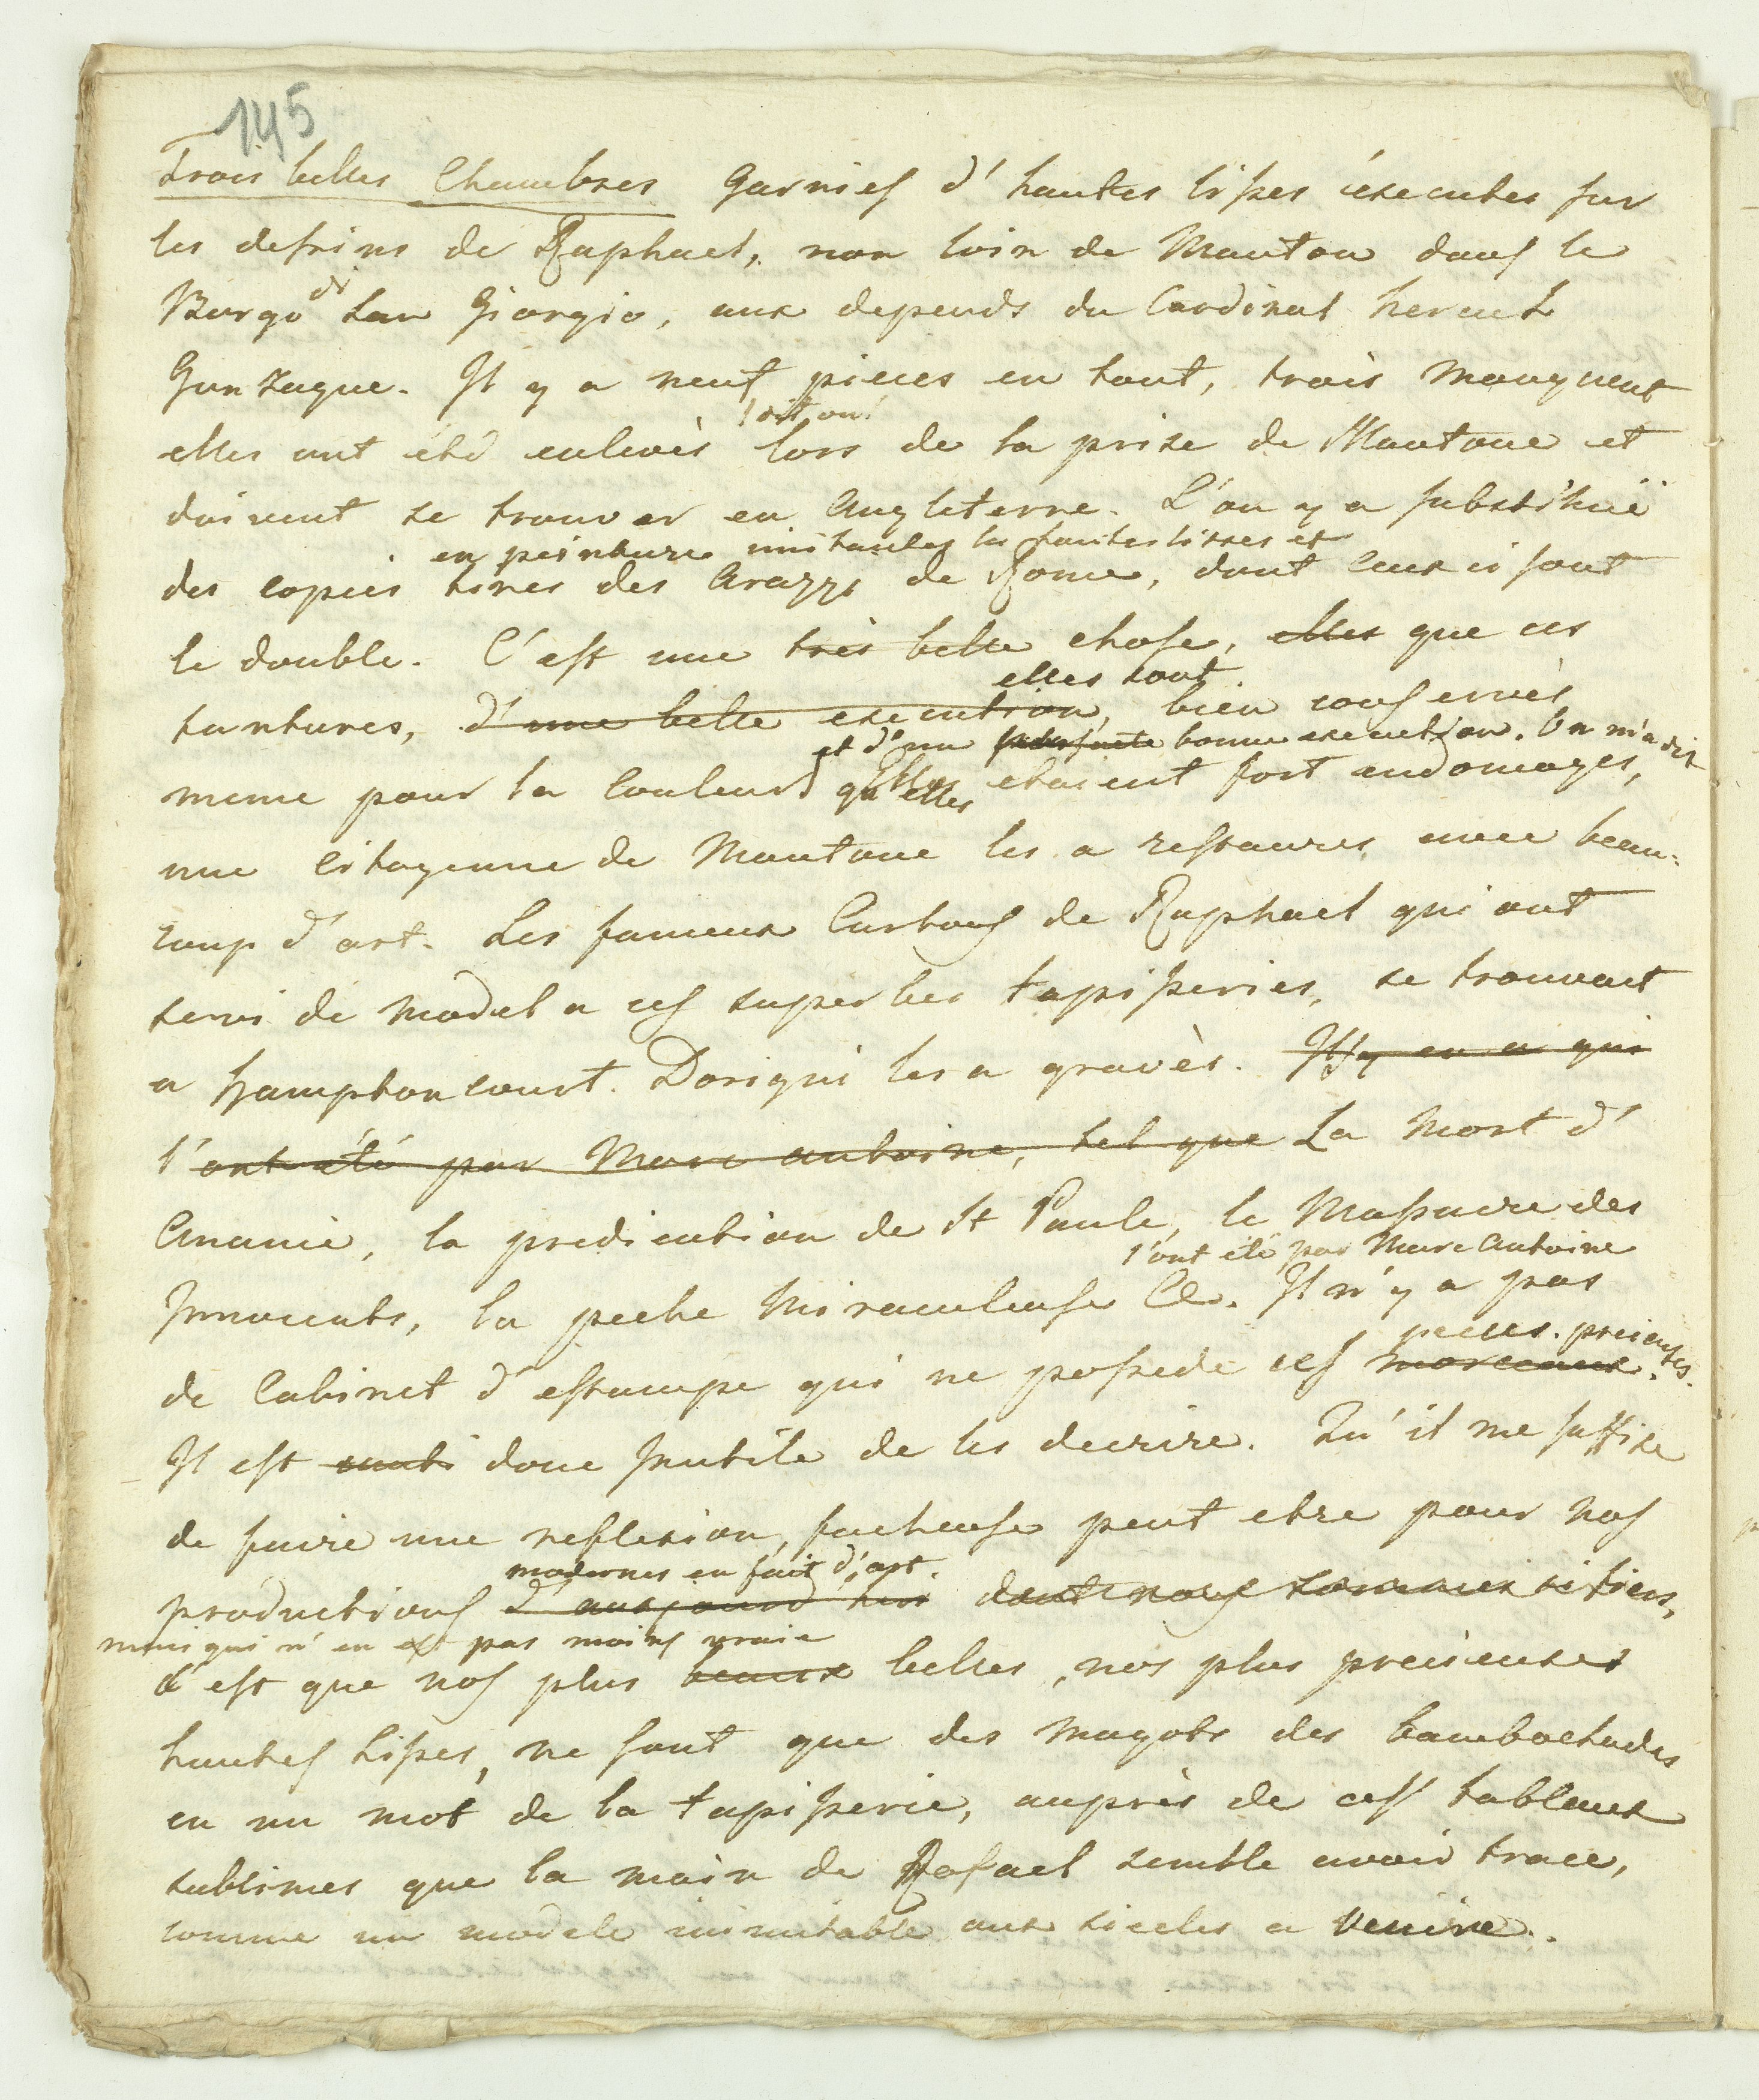 145
Trois belles Chambres Garnies d'hautes lisses éxecutes sur
les dessins de Raphael, non loin de Mantou dans le
Borgo di San Giorgio, aux depends du Cardinal
Gonzague. Il y a neuf pieces en tout, trois manquent
(dit on)
elles ont été enlevès lors de la prise de Mantoue et
doivent se trouver en Angleterre. L'on y a substituë
en peinture imitantes les hautes lisses et
des copies tires des Arazzi de Rome, dont ceux ci sont
le double. C'est une très belle chose, elles que ces
elles sont
tantures, d'une belle execution, bien conservès
et d'une parfaite bonne execution. On m'a dit
meme pour la Couleur qu'elles Elles etaient fort endomages,
une Citoyenne de Mantoue les a restaures avec beau-
coup d'art. Les fameux Cartons de Raphael qui ont
servi de model a ces superbes tapisseries, se trouvent
a hamptoncourt. Dorigni les a gravès. Il y en a qui
l'ont été par Marc antoine, tel que La Mort d'
Ananie, la predication de St Paule, le Massacre des
l'ont été par Marc Antoine
Innocents, la peche Miraculeuse &c. Il n'y a pas
pieces precieuses.
de Cabinet d'estampe qui ne possede ces morceaux.
Il est donc Inutile de les decrire. Qu'il me suffise
de faire une reflexion, facheuse peut etre pour nos
modernes en fait d'art.
productions d'aujourd'hui dont nous sommes si fiers,
mais qui n'en est pas moins vraie
c'est que nos plus beaux belles, nos plus precieuses
hautes lisses, ne sont que des magots des bambochades
en un mot de la tapisserie, auprès de ces tableaux
sublimes que la main de Rafael semble avoir trace,
comme un modele inimitable aux siecles a venire.